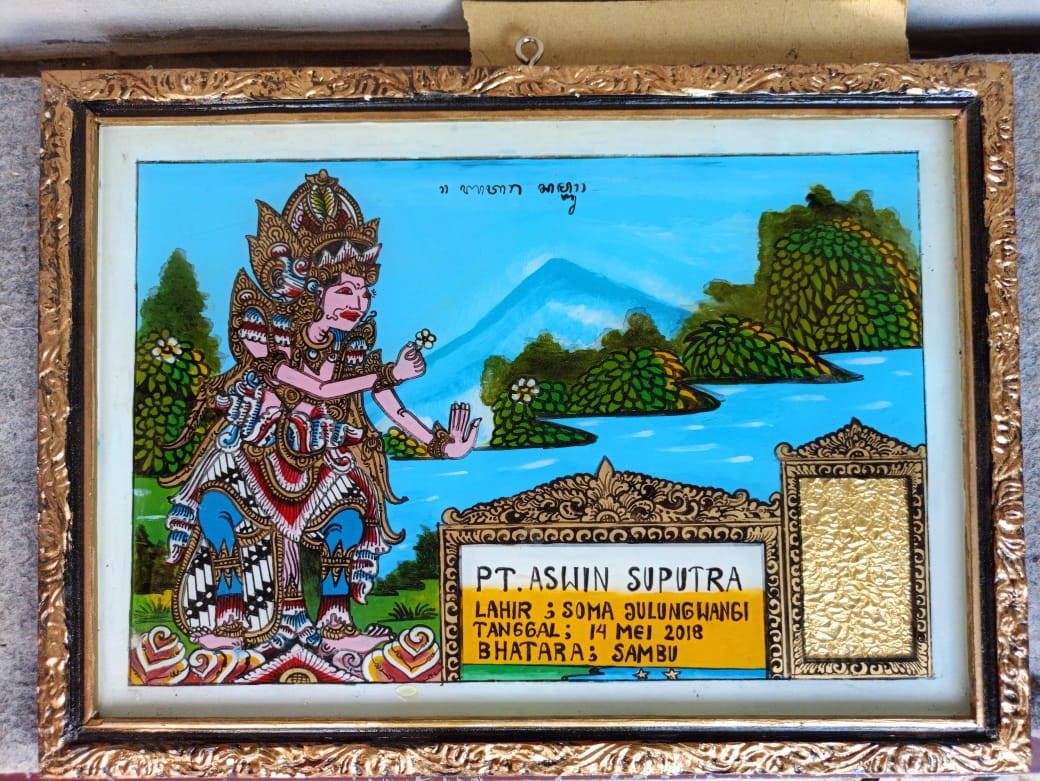 PT. ASWIN SUPUTRA
LAHIR ; SOMA JULUNGWANGI
TANGGAL ; 14 MEI 2018
BHATARA ; SAMBU